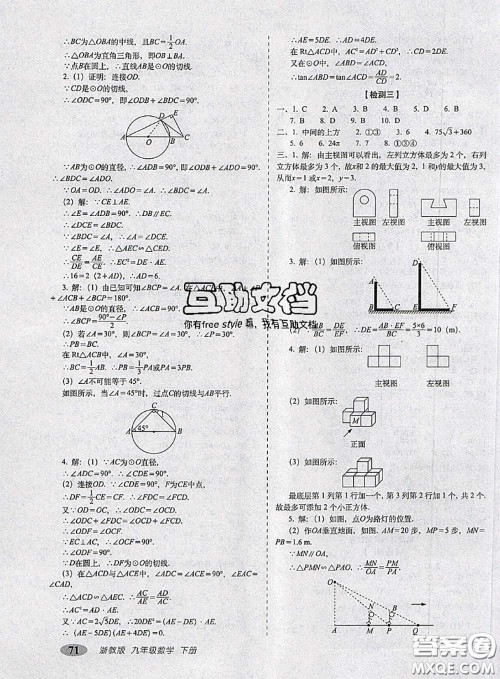 ∴BC为△OBA的中线，且BC=1/2OA.
∴△OBA为直角三角形，即OB⊥BA.
∵点B在圆上，∴直线AB是⊙O的切线.
2. (1) 证明：连接OD.
∵CD是⊙O的切线，
∴∠ODC=90°，即∠ODB+∠BDC=90°.
D
E
A
O
B
C
∵AB为⊙O的直径，∴∠ADB=90°，即∠ODB+∠ADO=90°. ∴∠BDC=∠ADO.
∵OA=OD. ∴∠ADO=∠A. ∴∠BDC=∠A.
(2) 解：∵CE⊥AE.
∴∠E=∠ADB=90°.
∴DB∥EC.
∴∠DCE=∠BDC.
∵∠BDC=∠A. ∴∠A=∠DCE.
∵∠E=∠E. ∴△AEC∽△CED.
∴CE/DE=AE/CE. ∴EC²=DE·AE.
∴16=2（2+AD）. ∴AD=6.
∴∠BCP=(90°-∠P)/2
(2) 若∠A=30°，则∠BCP=∠A=30°.
∴∠P=30°.
在Rt△ACB中，∠A=30°，
∴AB=2BC.
(3) ∠A不可能等于45°.
如图所示，当∠A=45°时，过点C的切线与AB平行.
C
A
45°
B
4. 解：(1) ∵AC为⊙O直径，
∴∠ADC=90°. ∴∠CDE=90°.
(2) 连接OD. ∵∠CDE=90°，F为CE中点，
∴DF=1/2CE=CF. ∴∠FDC=∠FCD.
又∵OD=OC，∴∠ODC=∠OCD.
∴∠ODC+∠FDC=∠OCD+∠FCD.
∴∠ODF=∠OCF.
∵EC⊥AC，∴∠OCF=90°.
∴∠ODF=90°.
∵点D在圆上，∴DF为⊙O的切线.
(3) 在△ACD与△ACE中，∠ADC=∠ACE=90°，∠EAC=∠CAD，
∴△ACD∽△AEC. ∴AC/AE=AD/AC.
∴AC²=AD·AE.
又AC=2√5DE，∴20DE²=（AE-DE）·AE.
∴（AE-5DE）（AE+4DE）=0.
71 浙教版 九年级数学 下册
∴AE=5DE. ∴AD=4DE.
∵在Rt△ACD中，AC²=AD²+CD²，
∴CD=2DE.
又在⊙O中，∠ABD=∠ACD，
∴tan∠ABD=tan∠ACD=AD/CD=2.
【检测三】
二、1. 中间的上方 2. ①③ 4. 75√3+360
三、1. 解：由主视图可以看出，左列立方体最多为2个，右列立方体最多为3个，故x和2的最大值为2，1和y的最大值为3，从而x=1或x=2，y=3.
2. 解：如图所示：
主视图 左视图
俯视图
主视图 左视图
俯视图
3. 解：(1) 如图所示：
D
A
B
C
E
F
(2) ∵AB/BC=DE/EF，∴DE=AB·EF/BC=5×6/3=10（m）.
4. 解：(1) 如图所示：
主视图 左视图
(2) 如图所示：
M
正面
(3) 如图所示：
最底层第1列第1行加一个，第3列第2行加2个，共3个，故最多可加2个小正方体.
5. 解：(1) 如图所示，点O为路灯的位置.
(2) 作OA垂直地面，如图. AM=20步，MP=5步，MN=PB=1.6 m.
∵MN∥OA，
∴△PMN∽△PAO. ∴MN/OA=PM/PA.
O
N
B
A
M
P
Q
互助文档
你有free style 看，我有互助文档
答案圈
MXQE.COM